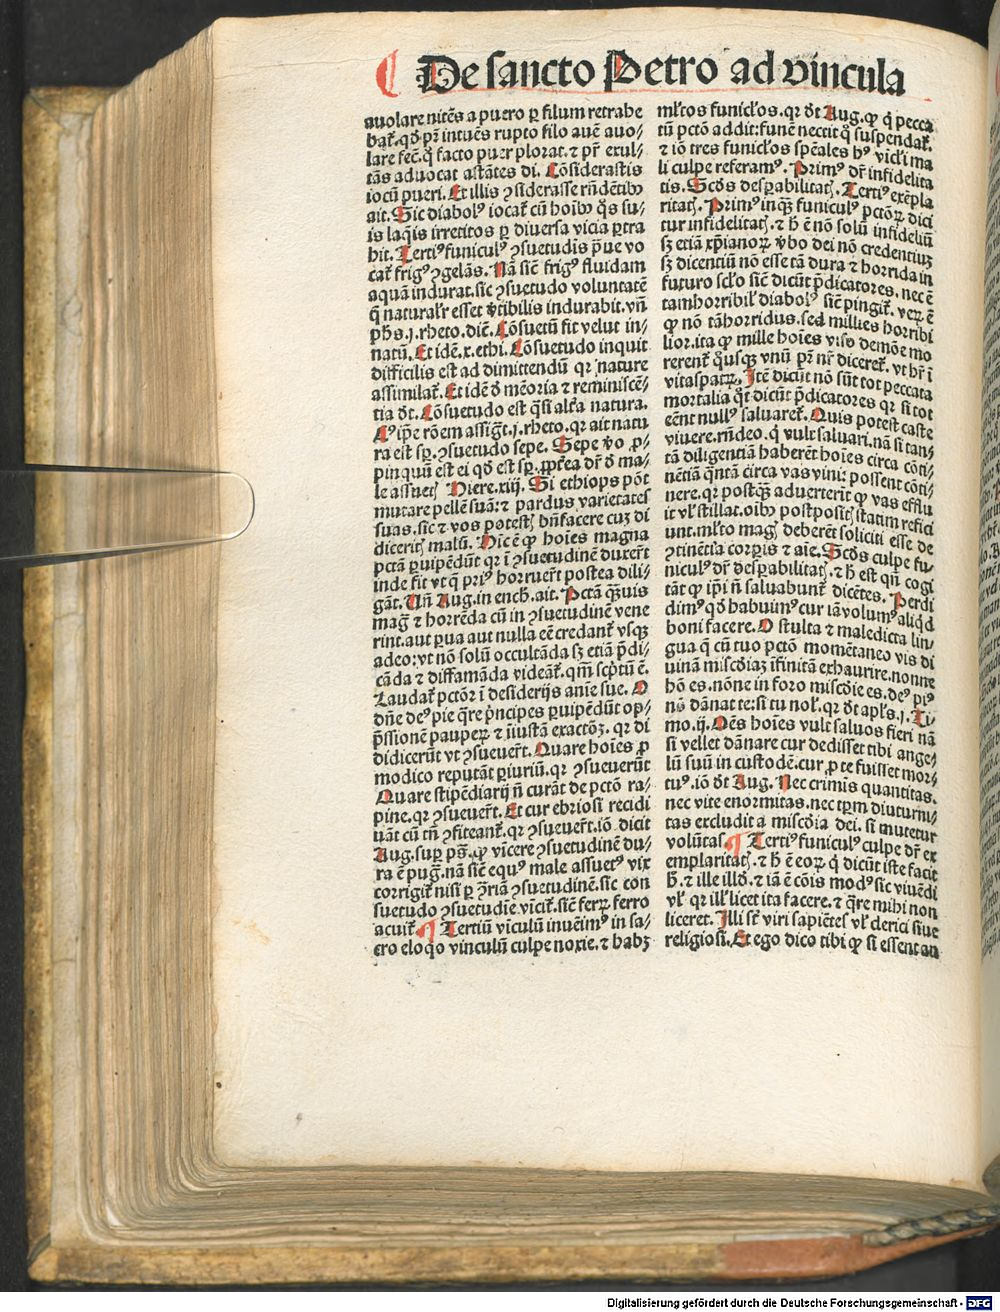 De sancto Petro ad vincula
auolare nitēs a puero ꝑ filum retrahe
bat̄. qd̄ pr̄ intuēs rupto filo auē auo⸗
lare fec̄. q̊ facto puer plorat. ⁊ pr̄ exul⸗
tās aduocat astātes di. Cōsiderastis
iocū pueri. Et illis ꝯsiderasse rn̄dētibꝰ
ait. Sic diabolꝰ iocat̄ cū hoībꝰ q̊s su⸗
is laq̄is irretitos ꝑ diuersa vicia ꝑtra
hit. Tertiꝰ funiculꝰ ꝯsuetudīs praue vo
cat̄ frigꝰ ꝯgelās. Nā sicut frigꝰ fluidam
aquā indurat. sic ꝯsuetudo voluntatē
q̄ naturalr̄ esset vertibilis indurabit. vn̄
phs̄. j. rheto. dic̄. Cōsuetū fit velut in⸗
natū. Et idē. x. ethi. Cōsuetudo inquit
difficilis est ad dimittendū qr̄ nature
assimilat̄. Et idē d̄ mēoria ⁊ reminiscē⸗
tia dt̄. Cōsuetudo est q̄si alt̄a natura.
Cꝰ ip̄e rōem assigt̄. j. rheto. qr̄ ait natu
ra est sp̄. ꝯsuetudo sepe. Sepe vo ꝓ⸗
pinquū est ei qd̄ est sp̄. ꝓpt̄ea dr̄ d̄ ma⸗
le assuetꝭ Hiere. xiij. Si ethiops pōt
mutare pellē suā: ⁊ pardus varietates
suas. sic ⁊ vos potestꝭ bn̄facere cuꝫ di
diceritꝭ malū. Hic ē ꝙ hoies magna
pctā ꝑuipēdūt qr̄ ī ꝯsuetudinē duxert̄
inde fit vt q̄ priꝰ horruert̄ postea dili⸗
gāt. Un̄ Aug. in ench̄. ait. Pctā q̄uis
magꝭ ⁊ horrēda cū in ꝯsuetudinē vene
rint. aut ꝑua aut nulla eē credant̄ vsqꝫ
adeo: vt nō solū occultāda sꝫ etiā p̄di⸗
cāda ⁊ diffamāda videāt̄. qm̄ scptū ē.
Laudat̄ pctōr ī desiderijs anie sue. O
dn̄e deꝰ pie q̄re pncipes ꝑuipēdūt op⸗
p̄ssionē pauperꝝ ⁊ iniustā exactōꝫ. qr̄ di
didicerūt vt ꝯsueuert̄. Quare hoies ꝓ
modico reputāt ꝑiuriū. qr̄ ꝯsueuerūt
Quare stipēdiarij n̄ curāt de pctō ra⸗
pine. qr̄ ꝯsueuert̄. Et cur ebriosi recidi
uāt cū tn̄ ꝯfiteant̄. qr̄ ꝯsueuert̄. iō dicit
Aug. sup ps̄. ꝙ vīcere ꝯsuetudinē du⸗
ra ē puḡ. nā sicut equꝰ male assuetꝰ vix
corrigit̄ nisi ꝑ ꝯriā ꝯsuetudinē. sic con
suetudo ꝯsuetudīe vīcit̄. sicut ferꝝ ferro
acuit̄. ¶ Tertiū viculū inuēimꝰ in sa⸗
cro eloqo vinculū culpe noxie. ⁊ habꝫ
ml̄tos funicl̄os. qr̄ dt̄ Aug. ꝙ q̄ pecca
tū pctō addit: funē nectit q̊ suspendat̄.
⁊ iō tres funicl̄os spēales hꝰ vicl̄i ma
li culpe referamꝰ. Primꝰ dr̄ infidelita
tis. Scd̄s despabilitatꝭ. Tertiꝰ exēpla
ritatꝭ. Primꝰ inqꝫ funiculꝰ pctōꝝ dici
tur infidelitatꝭ. ⁊ h̄ ē nō solū infideliū
sꝫ etiā xp̄ianoꝝ vbo dei nō credentiuꝫ
sꝫ dicentiū nō esse tā dura ⁊ horrida in
futuro scl̄o sicut dicūt p̄dicatores. nec ē
tam horribil̄ diabolꝰ sicut pingit̄. veꝝ ē
ꝙ nō tā horridus. sed millies horribi
lior. ita ꝙ mille hoīes viso demōe mo
rerent̄ q̄usqꝫ vnū pr̄ nr̄ diceret̄. vt hr̄ ī
vitaspatꝝ. Itē dicūt nō sūt tot peccata
mortalia qt̄ dicūt p̄dicatores qr̄ si tot
eēnt nullꝰ saluaret̄. Quis potest caste
viuere. rn̄deo. q̄ vult saluari. nā si tan⸗
tā diligentiā haberēt hoīes circa cōti⸗
nētiā q̄ntā circa vas vini: possent cōti⸗
nere. qr̄ postq̄ꝫ aduerterīt ꝙ vas efflu
it vl̓ stillat. oībꝰ postpositꝭ statim refici
unt. ml̄to magꝭ deberēt soliciti esse de
ꝯtinētia corꝑis ⁊ aīe. Scd̄s culpe fu⸗
niculꝰ dr̄ despabilitatꝭ. ⁊ h̄ est qn̄ cogi
tāt ꝙ ip̄i n̄ saluabunt̄ dicētes. Perdi
dimꝰ qd̄ habuimꝰ cur iā volumꝰ aliqd
boni facere. O stulta ⁊ maledicta lin⸗
gua q̄ cū tuo pctō momētaneo vis di
uinā miscd̄iaꝫ īfinitā exhaurire. nonne
hō es. nōne in foro miscd̄ie es. deꝰ piꝰ
nō dānat te: si tu nol̓. qr̄ dt̄ apl̄s. j. Ti⸗
mo. ij. Oēs hoīes vult saluos fieri nā
si vellet dānare cur dedisset tibi ange⸗
lū suū in custodē. cur ꝓ te fuisset mor⸗
tuꝰ. iō dt̄ Aug. Nec crimīs quantitas.
nec vite enormitas. nec tꝑm diuturni⸗
tas excludit a miscd̄ia dei. si mutetur
volūtas. ¶ Tertiꝰ funiculꝰ culpe dr̄ ex
emplaritatꝭ. ⁊ h̄ ē eoꝝ q̄ dicūt iste facit
h̄. ⁊ ille illd̄. ⁊ iā ē cōis modꝰ sic viuēdi
vl̓ qr̄ ill̓ licet ita facere. ⁊ q̄re mihi non
liceret. Illi st̄ viri sapiētes vl̓ clerici siue
religiosi. Et ego dico tibi ꝙ si essent an
Digitalisierung gefördert durch die Deutsche Forschungsgemeinschaft - DFG